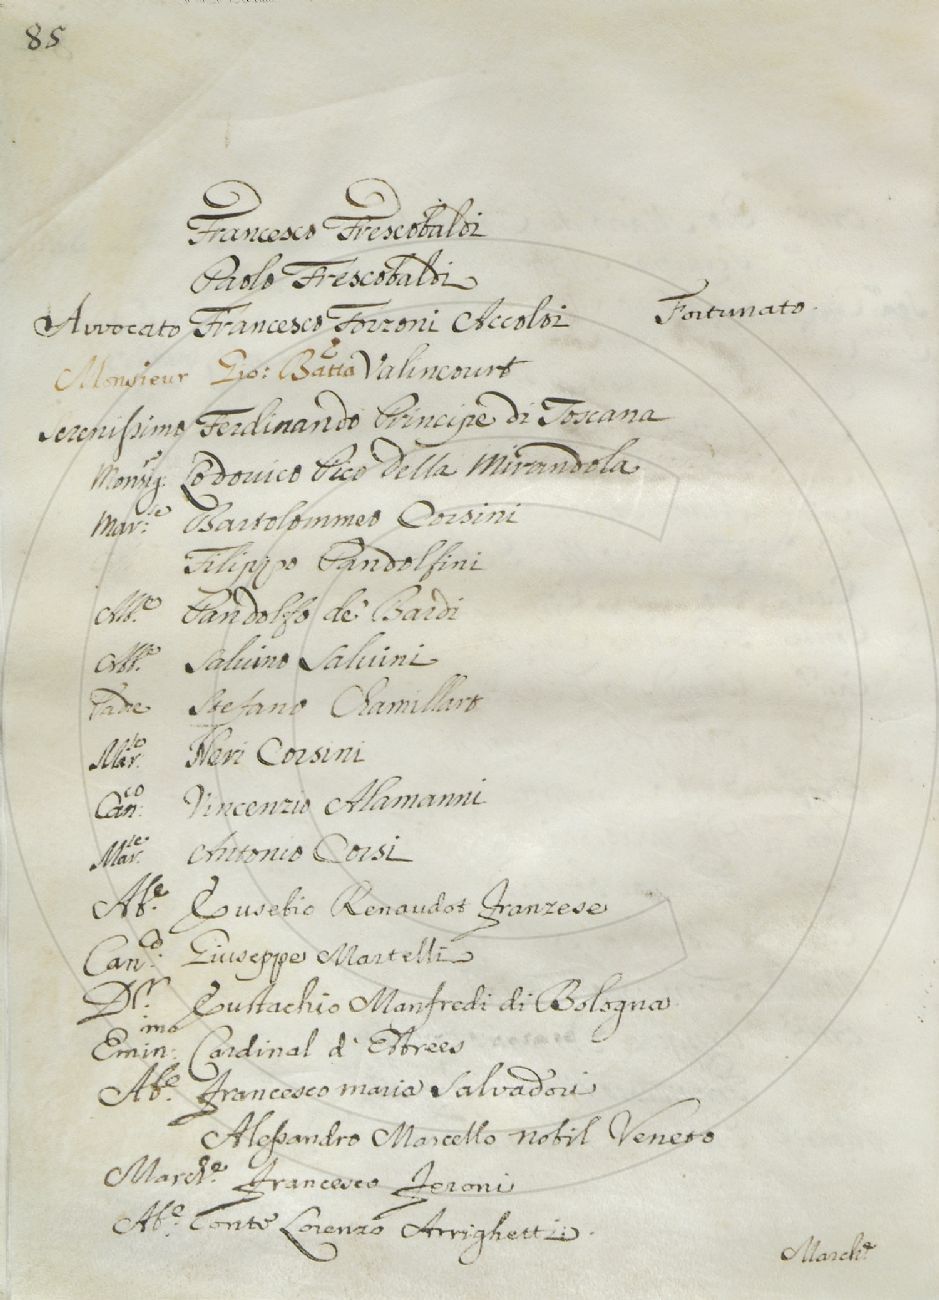 85
Francesco Frescobaldi
Paolo Frescobaldi
Avvocato Francesco Forzoni Accolti Fortunato.
Monsieur Gio: Batta Valincourt
Serenissimo Ferdinando Principe di Toscana
Monsig.r Lodovico Pico della Mirandola
Mar:se Bartolommeo Corsini
Filippo Pandolfini
Ab.e Pandolfo de' Bardi
Ab.e Salvino Salvini
Pade Stefano Chamillart
Mar.se Neri Corsini
Can:co Vincenzio Alamanni
Mar.se Antonio Corsi
Ab.e Eusebio Renaudot Franzese
Can.co Giuseppe Martelli
D.r Eustachio Manfredi di Bologna
Emin:mo Cardinal d'Etrees
Ab.e Francesco maria Salvadori
Alessandro Marcello nobil Veneto
March.e Francesco Feroni
Ab.e Conte Lorenzo Arrighetti.
March.e